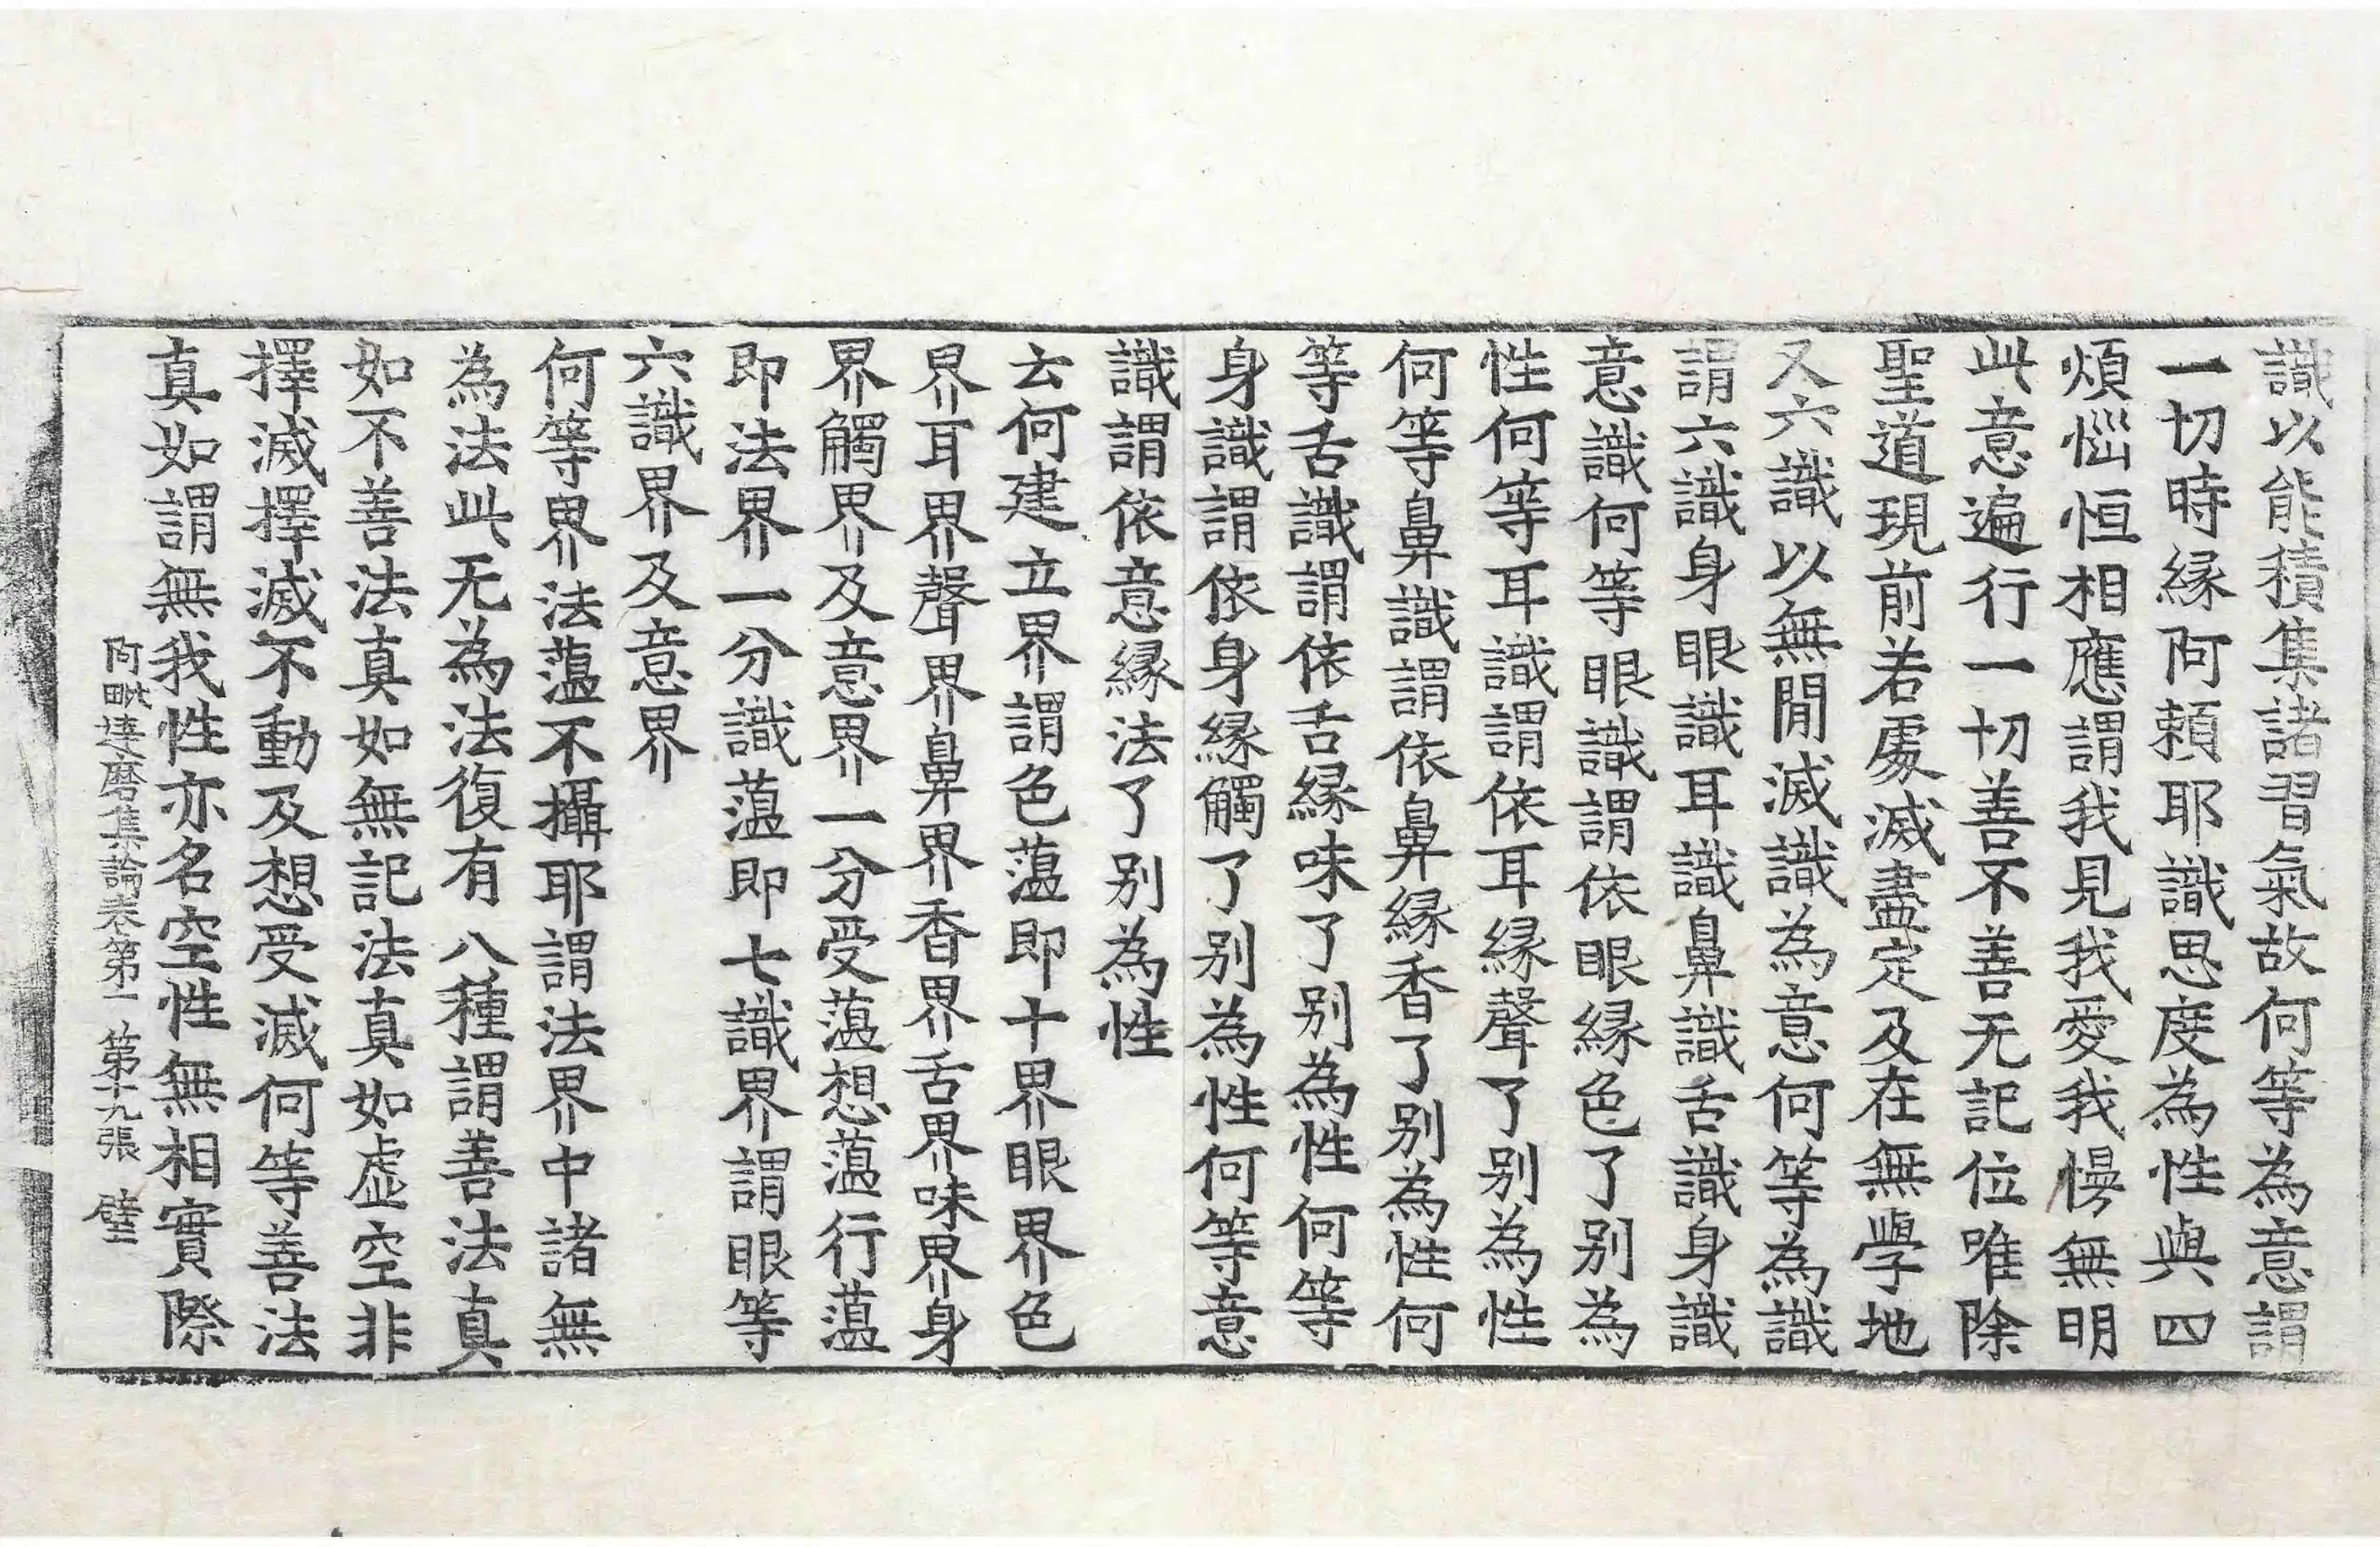 識以能積集諸習氣故何等為意謂
一切時縁阿頼耶識思度為性與四
煩惱恒相應謂我見我愛我慢無明
此意遍行一切善不善无記位唯除
聖道現前若處滅盡定及在無學地
又六識以無間滅識為意何等為識
謂六識身眼識耳識鼻識舌識身識
意識何等眼識謂依眼縁色了别為
性何等耳識謂依耳縁聲了别為性
何等鼻識謂依鼻縁香了别為性何
等舌識謂依舌縁味了别為性何等
身識謂依身縁觸了别為性何等意
識謂依意縁法了别為性
云何建立界謂色薀即十界眼界色
界耳界聲界鼻界香界舌界味界身
界觸界及意界一分受薀想薀行薀
即法界一分識薀即七識界謂眼等
六識界及意界
何等界法薀不攝耶謂法界中諸無
為法此无為法復有八種謂善法真
如不善法真如無記法真如虛空非
擇滅擇滅不動及想受滅何等善法
真如謂無我性亦名空性無相實際
阿毗達磨集論卷第一 第十九張 璧